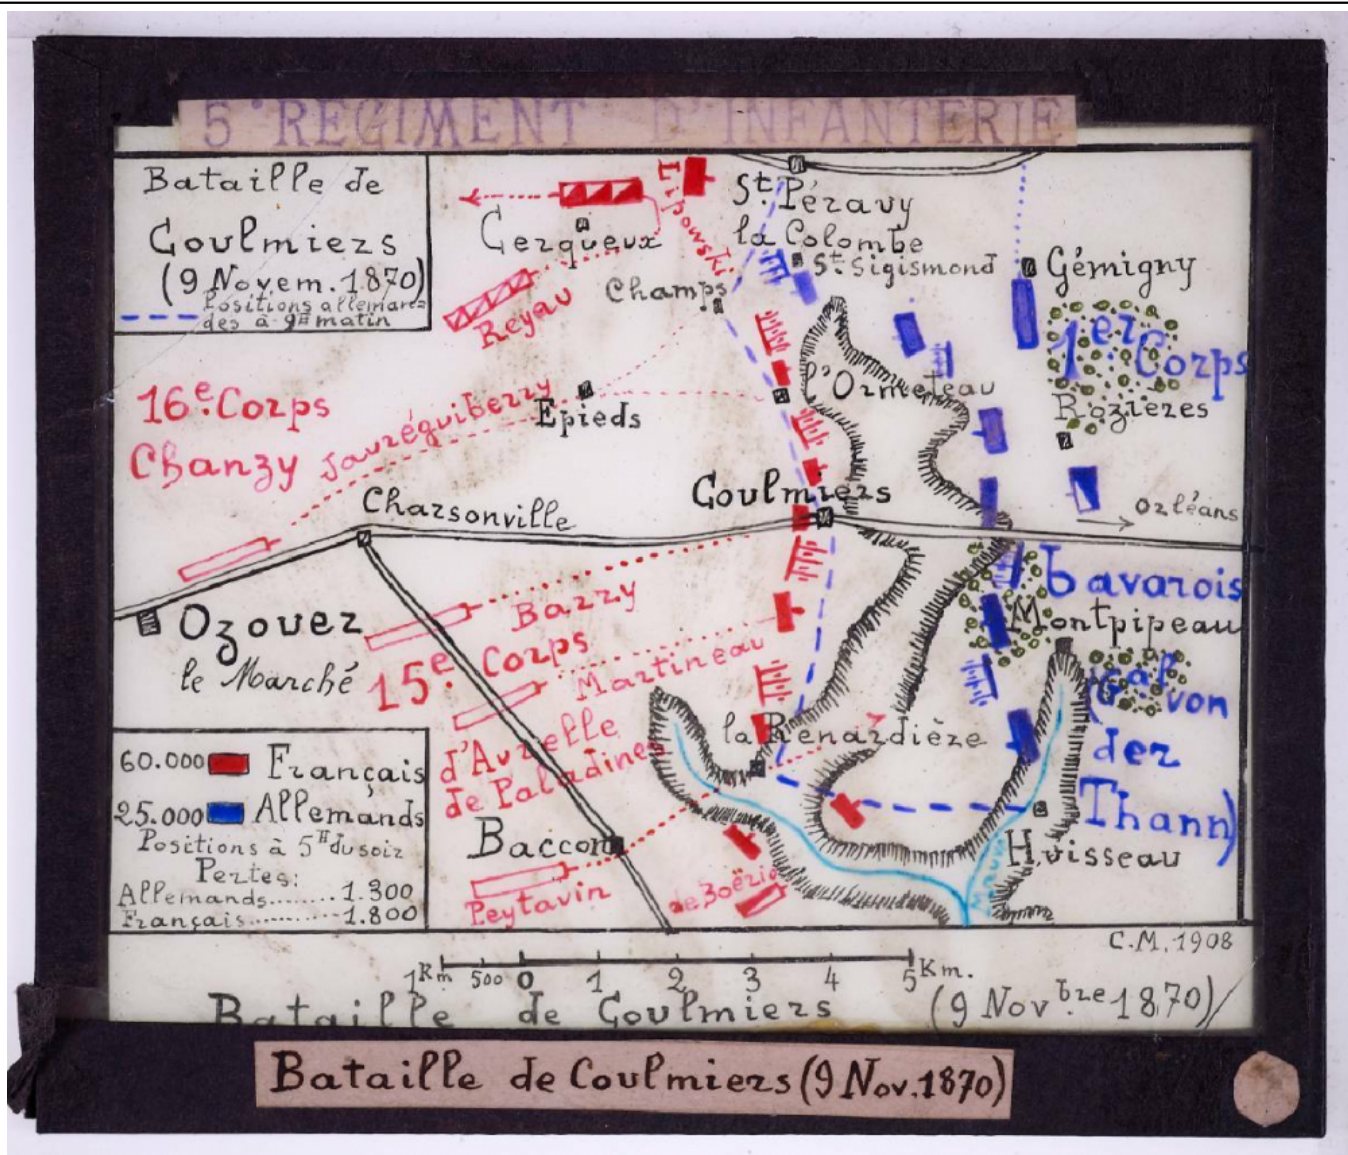 5e REGIMENT D'INFANTERIE
Bataille de
Coulmiers
(9 Novem. 1870)
Positions alleman=
des à 9H matin
Lipowski
St. Péravy
la Colombe
St. Sigismond
Cerqueux
Reyau
Champs
Gémigny
1er Corps
l'Ormeteau
Rozières
16e. Corps
Chanzy
Jauréguiberry
Epieds
Coulmiers
Charsonville
Orléans
Ozouer
le Marché
Barry
15e Corps
Martineau
d'Aurelle
de Paladines
bavarois
Montpipeau
(Gal von
der
Thann)
la Renardière
Huisseau
Mauve
Baccon
Peytavin
de Boério
60.000 Français
25.000 Allemands
Positions à 5H du soir
Pertes:
Allemands........1.300
Français..........1.800
C.M. 1908
1Km 500 0 1 2 3 4 5Km.
Bataille de Coulmiers (9 Novbre 1870)
Bataille de Coulmiers (9 Nov. 1870)